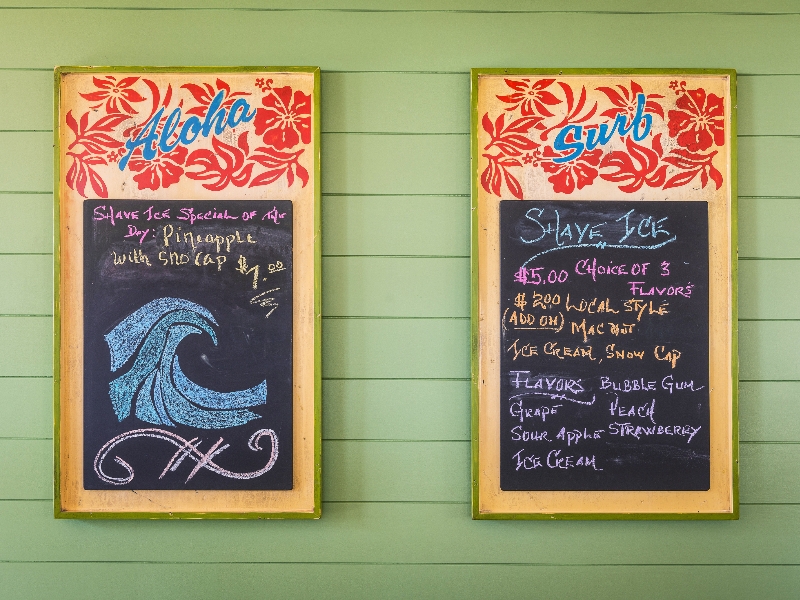 Aloha
SHAVE ICE SPECIAL OF THE
DAY: PINEAPPLE
WITH SNO CAP $7.00
Surf
SHAVE ICE
$5.00 CHOICE OF 3
FLAVORS
$2.00 LOCAL STYLE
(ADD ON) MAC NUT
ICE CREAM, SNOW CAP
FLAVORS BUBBLE GUM
GRAPE PEACH
SOUR APPLE STRAWBERRY
ICE CREAM